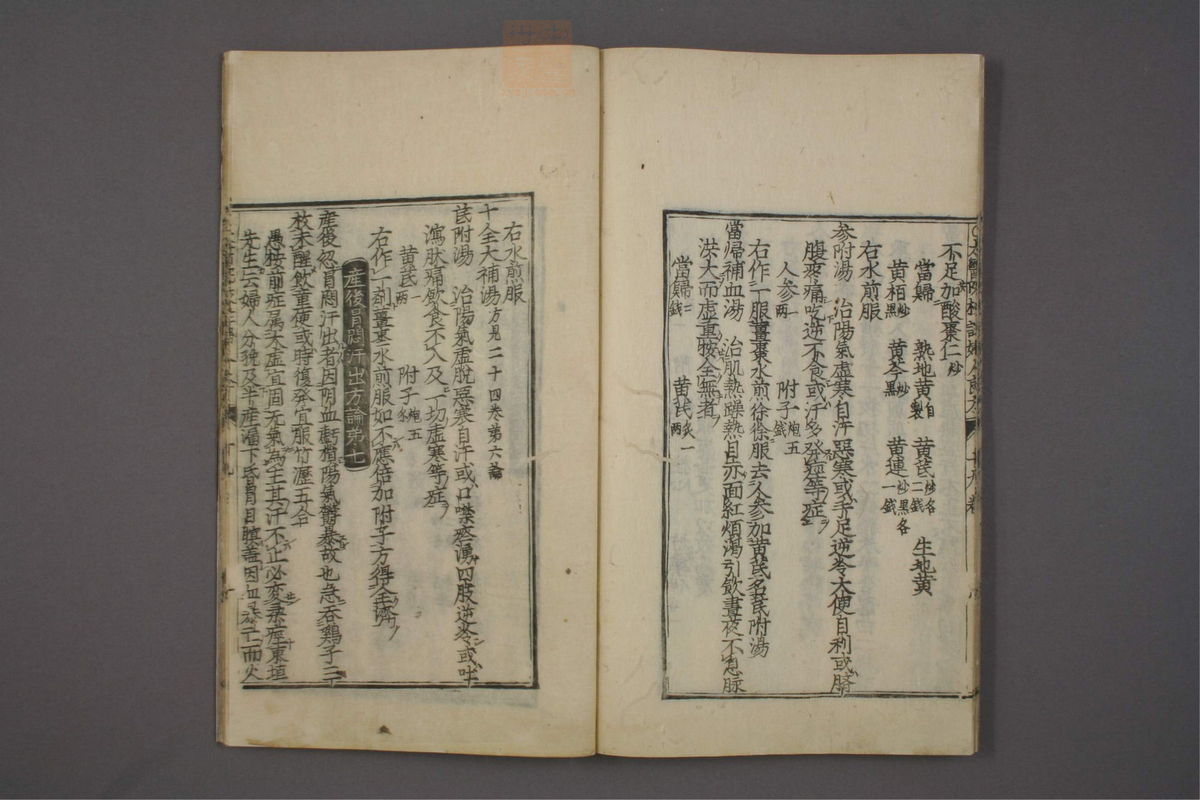 不足加酸棗仁炒
當歸二錢 熟地黃自製 黃芪炒二錢 生地黃
黃栢炒黑 黃芩炒黑 黃連炒黑各一錢
右水煎服
參附湯 治陽氣虛寒自汗惡寒或手足逆冷大便自利或臍
腹疼痛吃逆不食或汗多發痙等症
人參一兩 附子炮五錢
右作一服薑棗水煎徐徐服去人參加黃芪名芪附湯
當帰補血湯 治肌熱躁熱目赤面紅煩渴引飲晝夜不息脉
洪大而虛重按全無者
當歸二錢 黃芪炙一兩
右水煎服
十全大補湯方見二十四卷第六論
芪附湯 治陽氣虛脫惡寒自汗或口噤痰湧四肢逆冷或吐
瀉肽痛飲食不入及一切虛寒等症
黃芪一兩 附子炮五錢
右作一劑薑棗水煎服如不應倍加附子方得全濟
產後冒悶汗出方論第七
產後忽冒悶汗出者因陰血虧損陽氣鬱暴故也急吞鷄子二
枚未醒飲童便或時復發宜服竹瀝五合
愚按前症屬末虛宜固元氣為主其汗不止必変柔痙東垣
先生云婦人分娩及半產漏下昏冒目瞑蓋因血暴亡而火